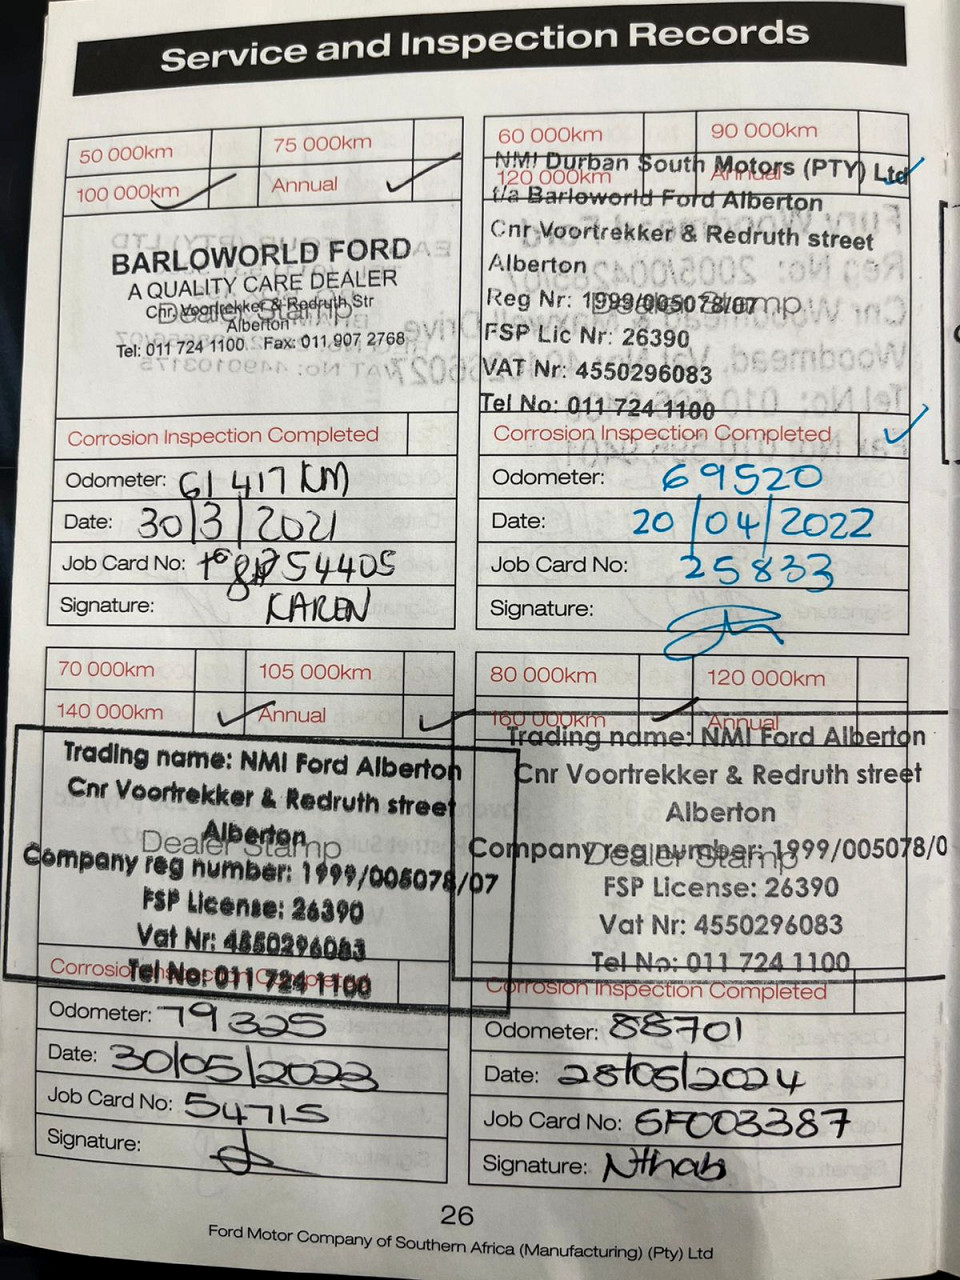 Service and Inspection Records
50 000km 75 000km
100 000km Annual
BARLOWORLD FORD
A QUALITY CARE DEALER
Dealer Stamp
Cnr Voortrekker & Redruth Str
Alberton
Tel: 011 724 1100 Fax: 011 907 2768
Corrosion Inspection Completed
Odometer: 61 417 KM
Date: 30/3/2021
Job Card No:
Signature: KAREN
60 000km 90 000km
120 000km Annual
NMI Durban South Motors (PTY) Ltd
t/a Barloworld Ford Alberton
Cnr Voortrekker & Redruth street
Alberton
Reg Nr: 1999/005078/07
Dealer Stamp
FSP Lic Nr: 26390
VAT Nr: 4550296083
Tel No: 011 724 1100
Corrosion Inspection Completed
Odometer: 69520
Date: 20/04/2022
Job Card No: 25833
Signature:
70 000km 105 000km
140 000km Annual
Trading name: NMI Ford Alberton
Cnr Voortrekker & Redruth street
Alberton
Dealer Stamp
Company reg number: 1999/005078/07
FSP License: 26390
Vat Nr: 4550296083
Tel No: 011 724 1100
Corrosion Inspection Completed
Odometer: 79325
Date: 30/05/2023
Job Card No: 54715
Signature:
80 000km 120 000km
160 000km Annual
Trading name: NMI Ford Alberton
Cnr Voortrekker & Redruth street
Alberton
Company reg number: 1999/005078/0
Dealer Stamp
FSP License: 26390
Vat Nr: 4550296083
Tel No: 011 724 1100
Corrosion Inspection Completed
Odometer: 88701
Date: 28/05/2024
Job Card No: 6F003387
Signature: Nthab
26
Ford Motor Company of Southern Africa (Manufacturing) (Pty) Ltd